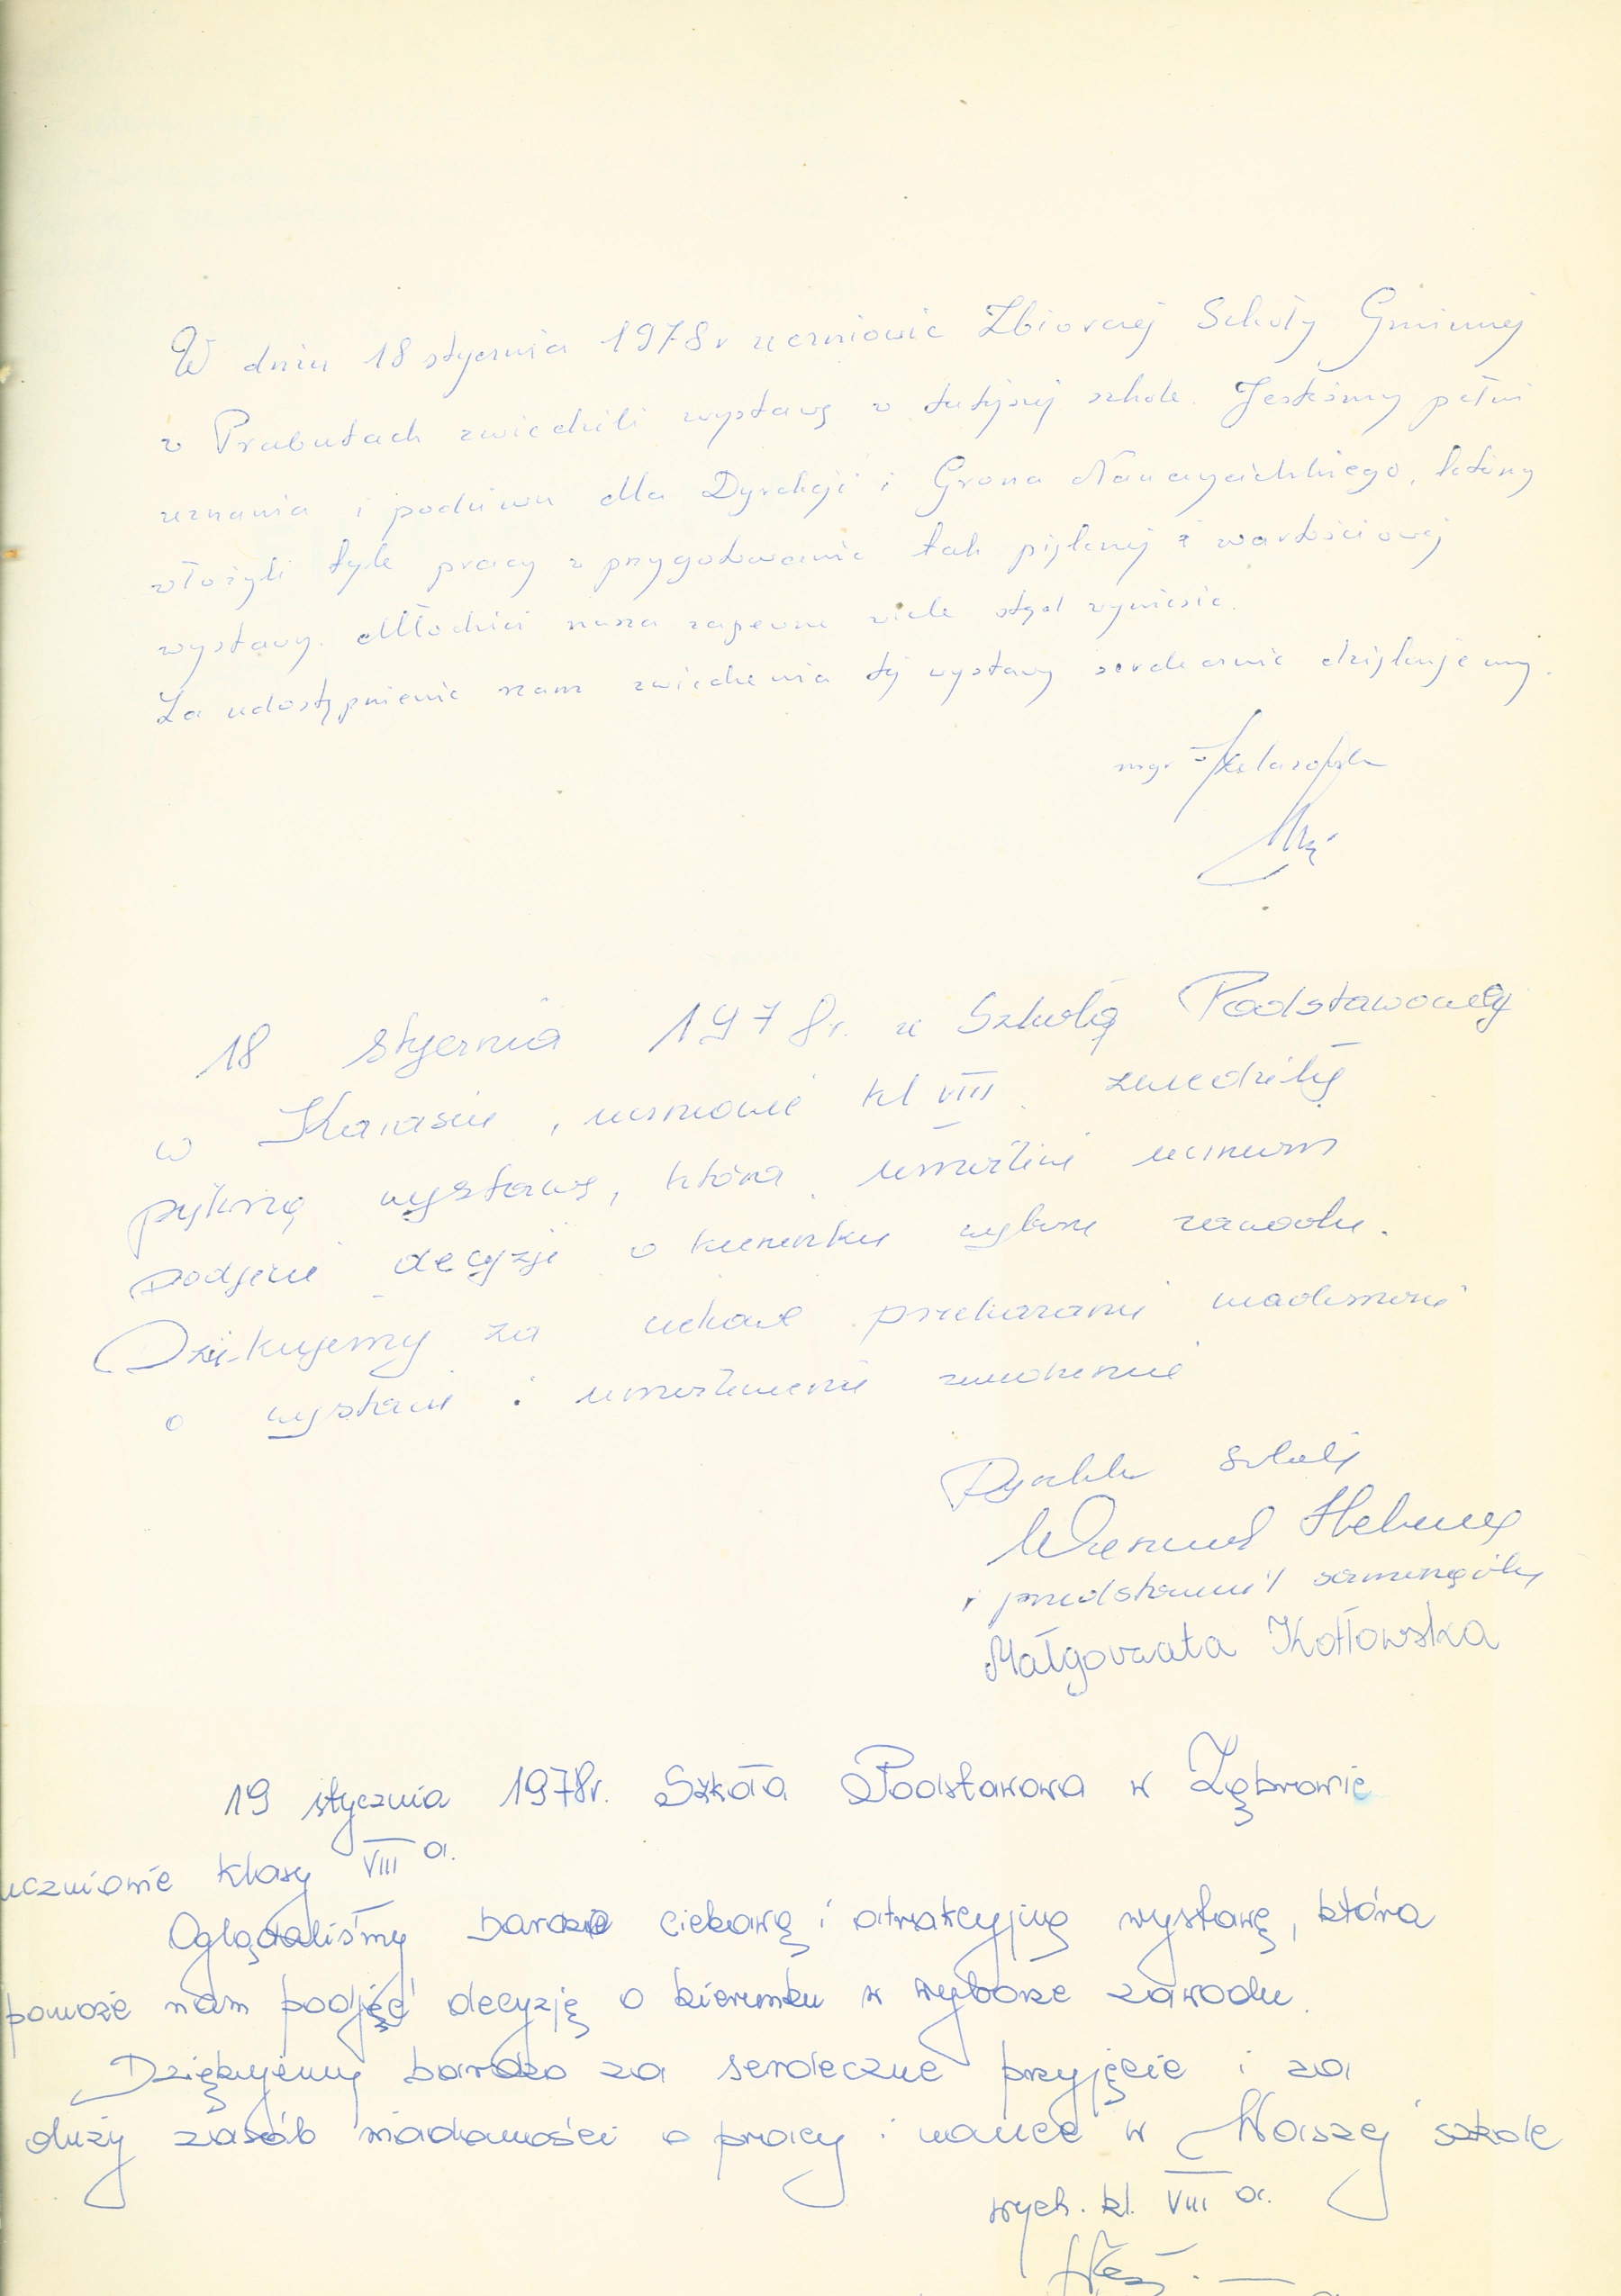 W dniu 18 stycznia 1978 r uczniowie Zbiorczej Szkoły Gminnej
w Prabutach zwiedzili wystawę w tutejszej szkole. Jesteśmy pełni
uznania i podziwu dla Dyrekcji i Grona Nauczycielskiego, którzy
włożyli tyle pracy w przygotowanie tak pięknej i wartościowej
wystawy. Młodzież nasza zapewne wiele stąd wyniesie.
Za udostępnienie nam zwiedzenia tej wystawy serdecznie dziękujemy.
mgr
18 stycznia 1978 r. ze Szkołą Podstawową
w Karasiu, uczniowie kl VIII zwiedziły
piękną wystawę, która umożliwi uczniom
podjęcie decyzji o kierunku wyboru zawodu.
Dziękujemy za ciekawe przekazanie wiadomości
o wystawie i umożliwienie zwiedzenia
Dyrektor szkoły
i przedstawiciel samorządu
Małgorzata Kotłowska
19 stycznia 1978r. Szkoła Podstawowa w Ząbrowie
uczniowie klasy VIII a.
Oglądaliśmy bardzo ciekawą i atrakcyjną wystawę, która
pomoże nam podjąć decyzję o kierunku w wyborze zawodu.
Dziękujemy bardzo za serdeczne przyjęcie i za
duży zasób wiadomości o pracy i nauce w Waszej szkole
wych. kl. VIII a.